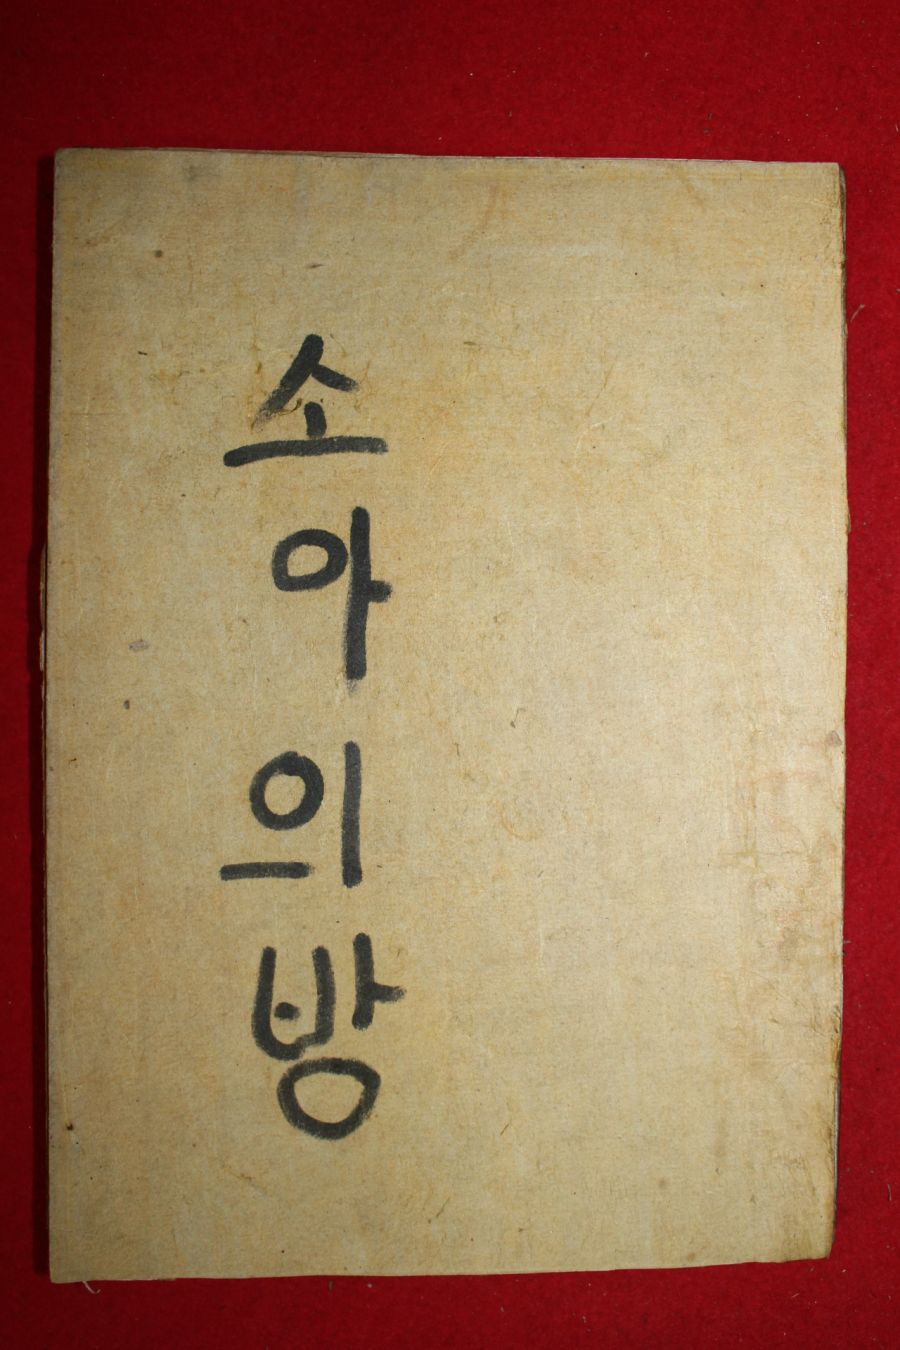 소아의방